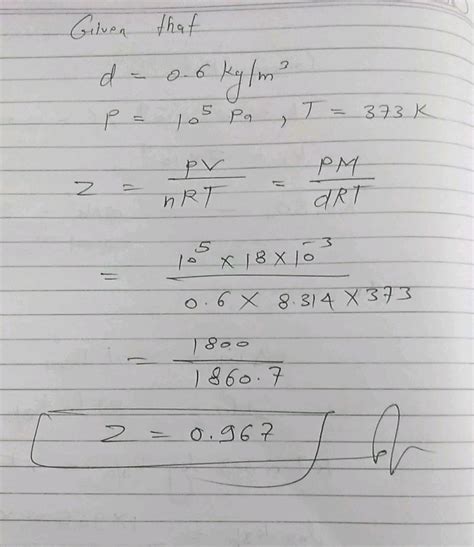 Given that
d = 0.6 kg/m³
P = 10⁵ Pa, T = 373 K
Z = PV/nRT = PM/dRT
= 10⁵ × 18 × 10⁻³ / 0.6 × 8.314 × 373
= 1800/1860.7
Z = 0.967